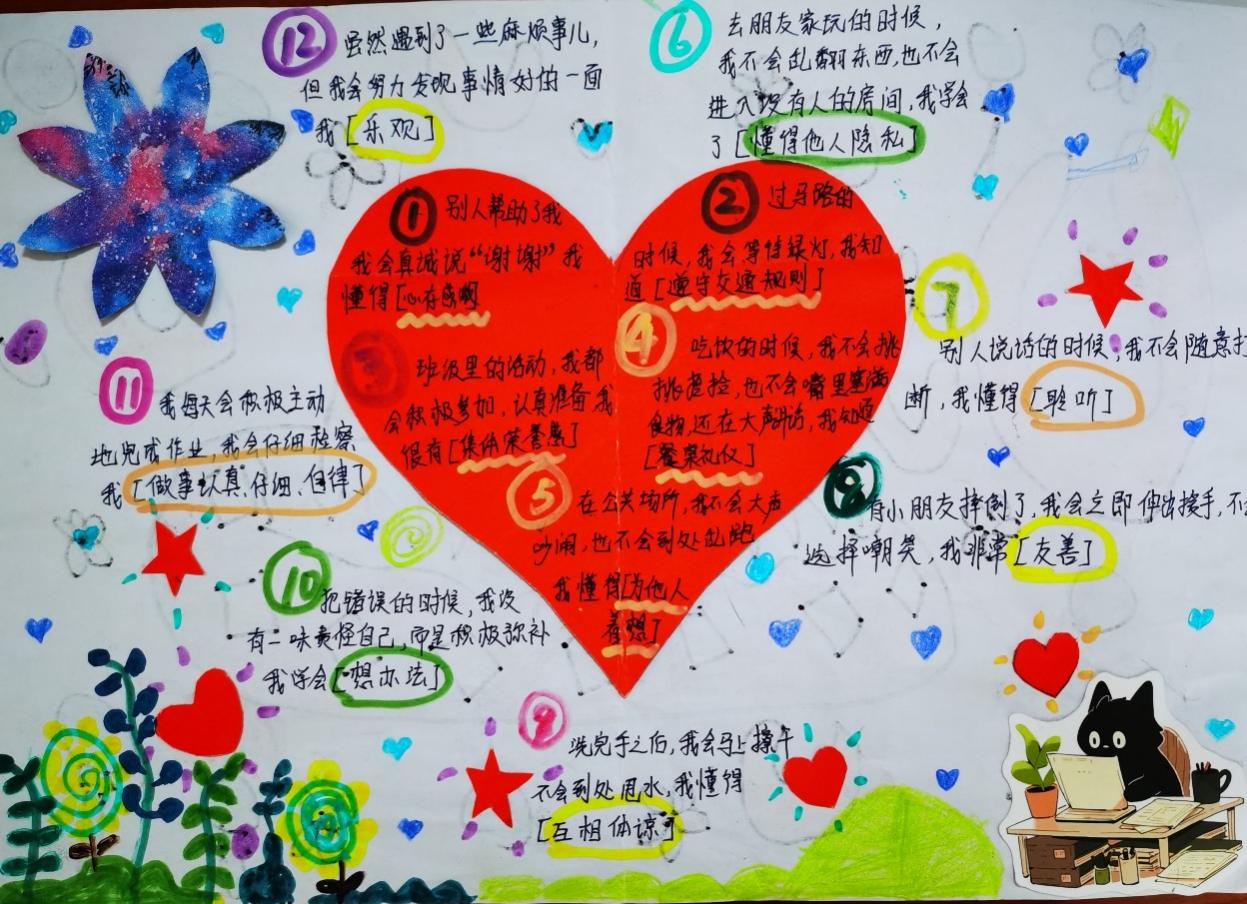 ①别人帮助了我
我会真诚说“谢谢”我
懂得[心存感恩]
②过马路的
时候，我会等待绿灯，我知
道[遵守交通规则]
③班级里的活动，我都
会积极参加，认真准备，我
很有[集体荣誉感]
④吃饭的时候，我不会挑
挑捡捡，也不会嘴里塞满
食物，还在大声讲话，我知道
[餐桌礼仪]
⑤在公共场所，我不会大声
吵闹，也不会到处乱跑
我懂得[为他人
着想]
⑥去朋友家玩的时候，
我不会乱翻东西，也不会
进入没有人的房间，我学会
了[懂得他人隐私]
⑦
别人说话的时候，我不会随意打
断，我懂得[聆听]
⑧有小朋友摔倒了，我会立即伸出援手，不会
选择嘲笑，我非常[友善]
⑨洗完手之后，我会马上擦干
不会到处甩水，我懂得
[互相体谅]
⑩犯错误的时候，我没
有一味责怪自己，而是积极弥补
我学会[想办法]
⑪我每天会积极主动
地完成作业，我会仔细检察
我[做事认真、仔细、自律]
⑫虽然遇到了一些麻烦事儿，
但我会努力发现事情好的一面
我[乐观]